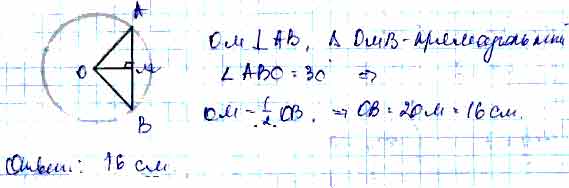 A
O
M
B
OM ⊥ AB, Δ OMB - прямоугольный
∠ ABO = 30° ⇒
OM = 1/2 OB, ⇒ OB = 2OM = 16 см.
Ответ: 16 см